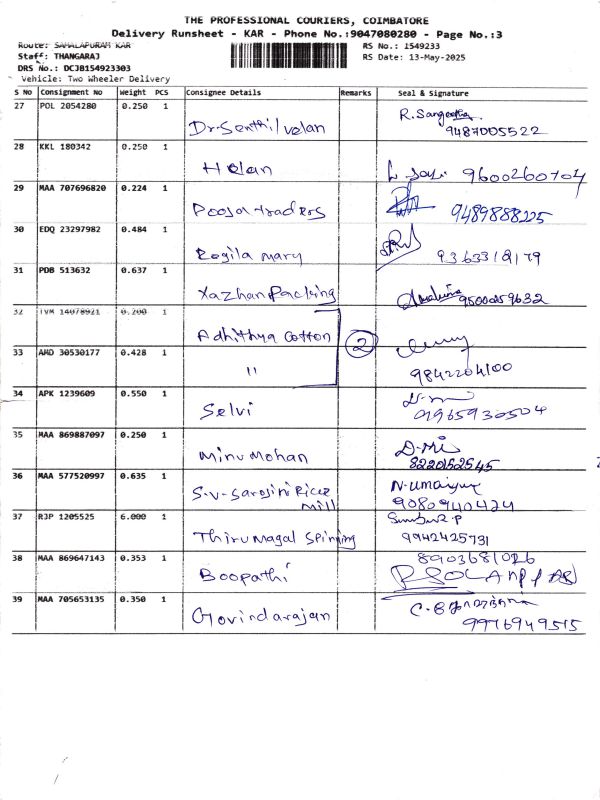 THE PROFESSIONAL COURIERS, COIMBATORE
Delivery Runsheet - KAR - Phone No.:9047080280 - Page No.:3
Route: SAMALAPURAM KAR
RS No.: 1549233
Staff: THANGARAJ
RS Date: 13-May-2025
DRS No.: DCJB154923303
Vehicle: Two Wheeler Delivery
S NO Consignment No Weight PCS Consignee Details Remarks Seal & Signature
27 POL 2054280 0.250 1 Dr. Senthil velan R. Sangeetha
9487005522
28 KKL 180342 0.250 1 Helan 9600260704
29 MAA 707696820 0.224 1 Pooja traders 9489888225
30 EDQ 23297982 0.484 1 Regila mary 9363312179
31 PDB 513632 0.637 1 Yazhan Packing 9500059632
32 TVM 14078921 0.200 1 Adhithya Cotton
2
33 AMD 30530177 0.428 1 "
9842204100
34 APK 1239609 0.550 1 Selvi
9965930504
35 MAA 869887097 0.250 1 Minu Mohan
8220152545
36 MAA 577520997 0.635 1 S.V. Sarojini Rice Mill N. Umaiya
9080940424
37 RJP 1205525 6.000 1 Thirumagal Spinning
9942425731
38 MAA 869647143 0.353 1 Boopathi 8903681026
39 MAA 705653135 0.350 1 Govindarajan
9976949515